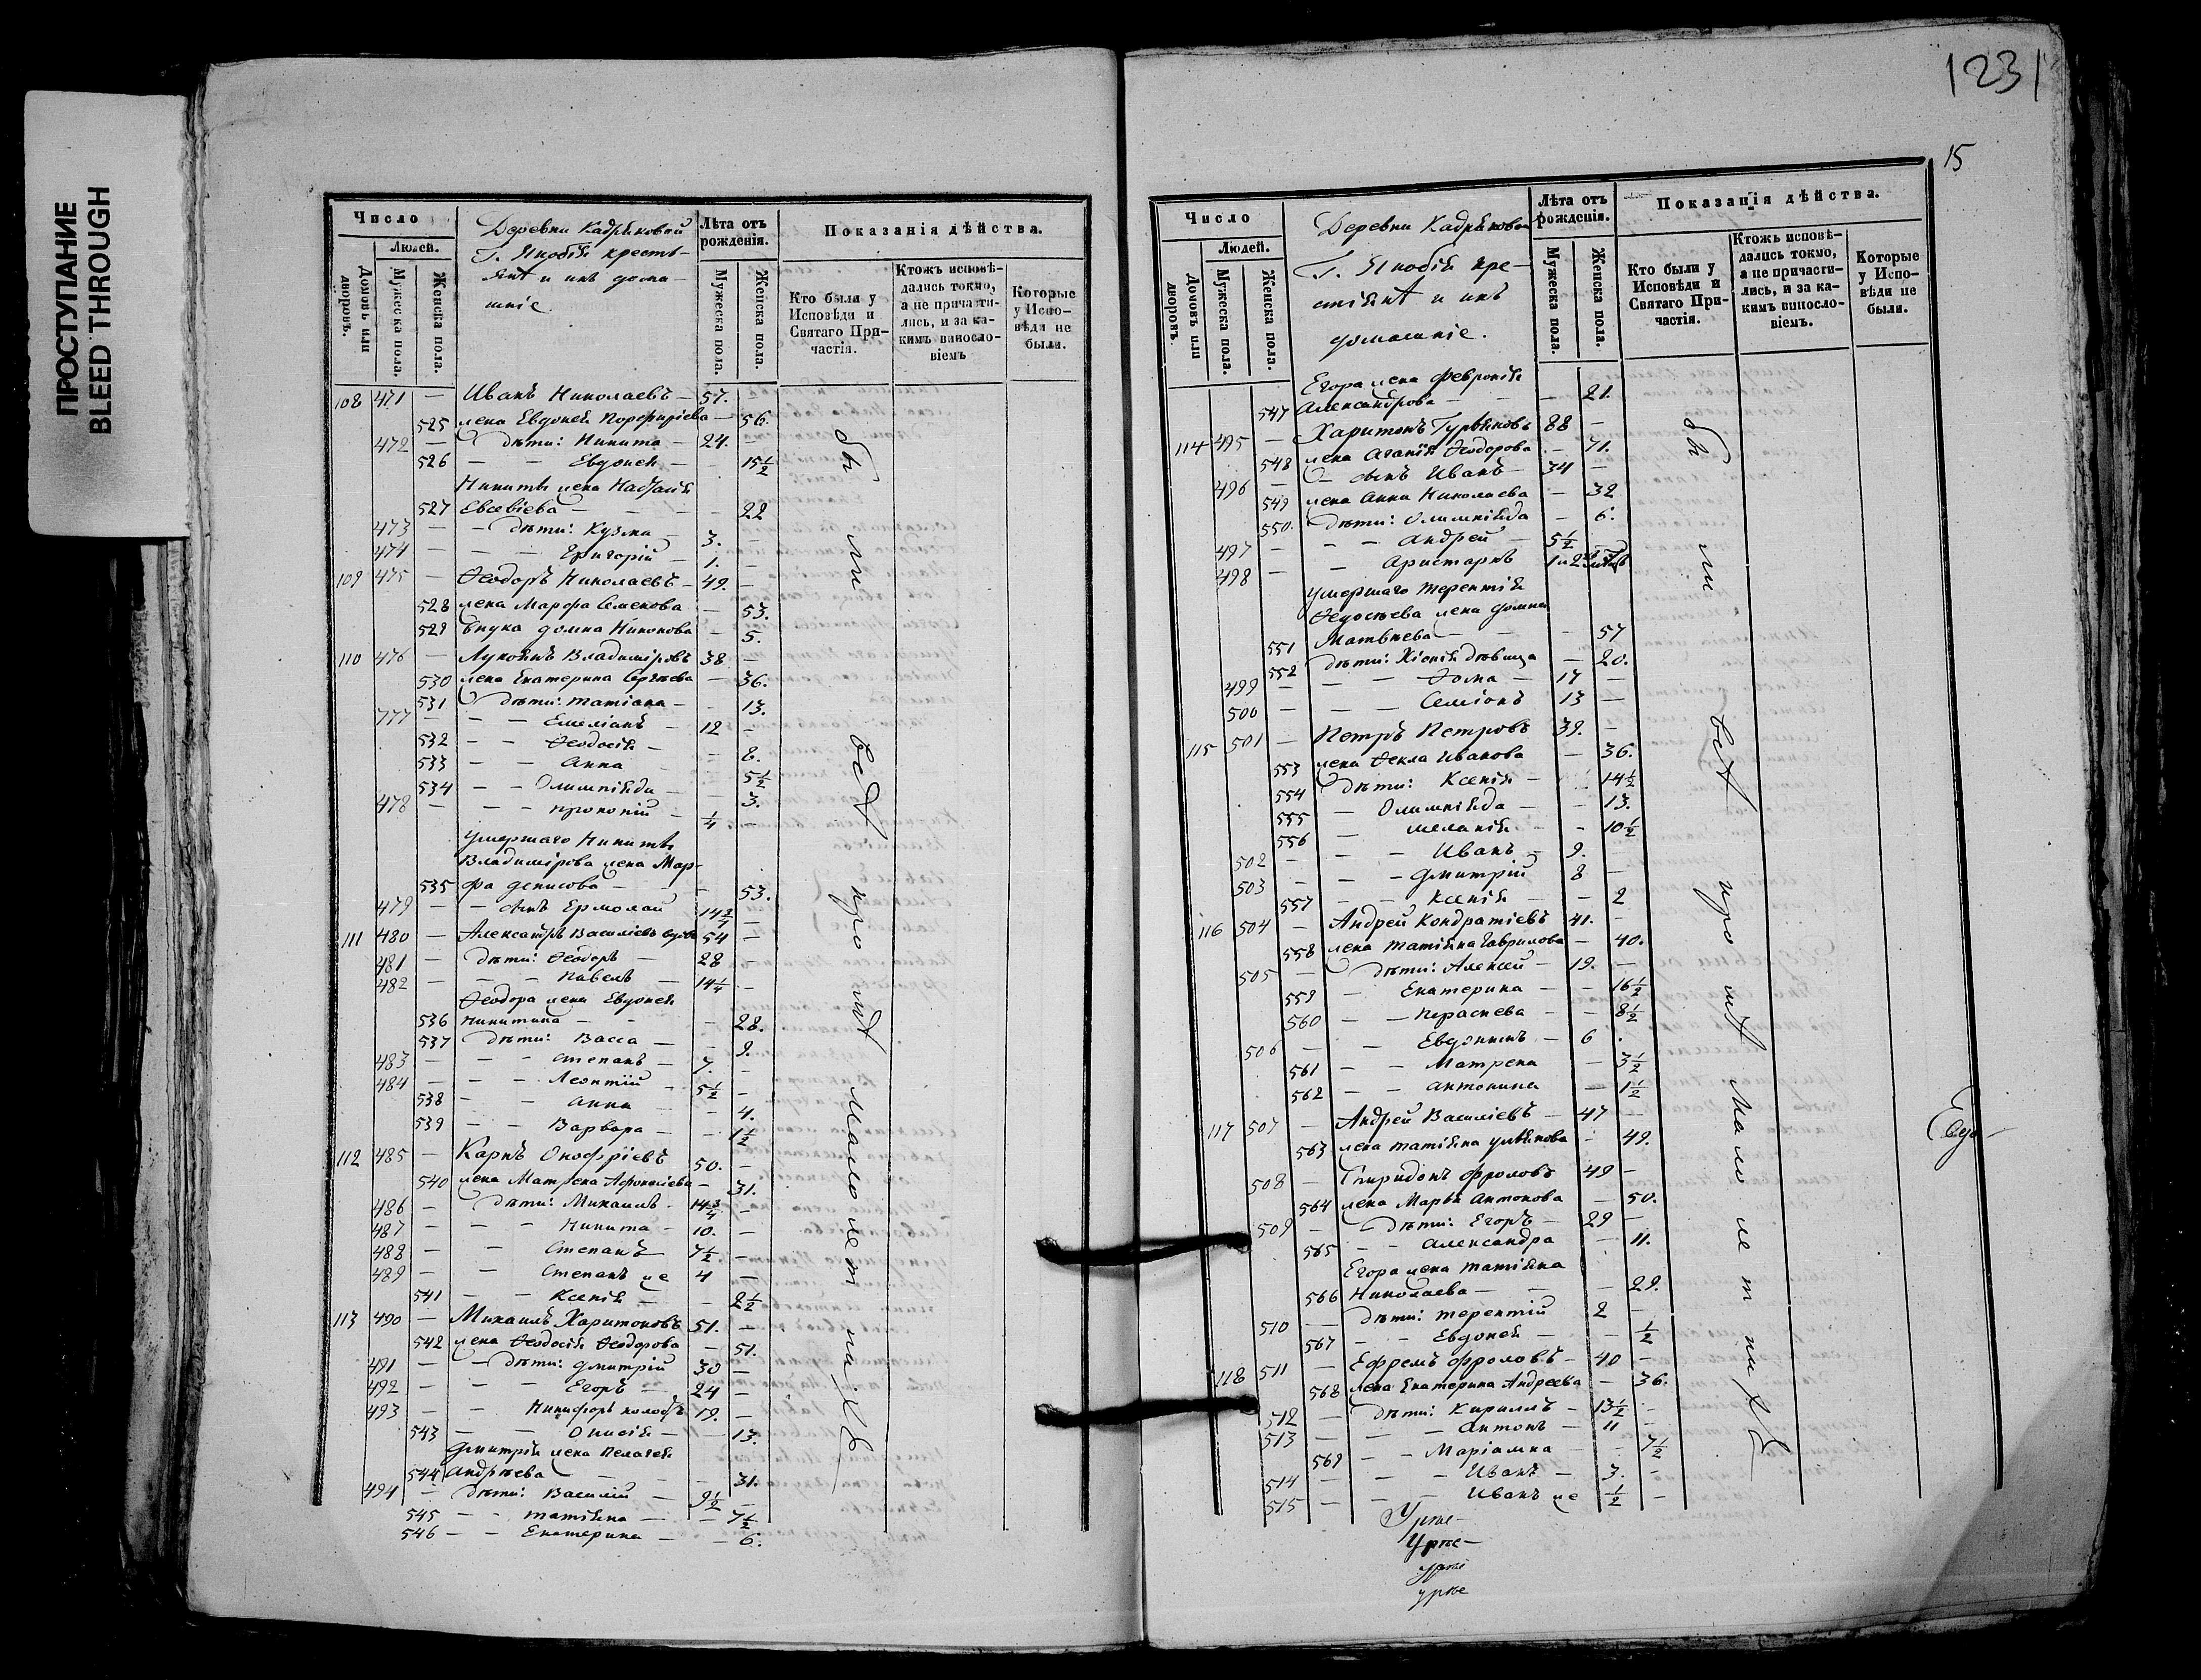 ПРОСТУПАНИЕ
BLEED THROUGH
Число
Людей.
Домовъ или дворовъ.
Мужеска пола.
Женска пола.
Деревни Кадряковой
Г. Якобія крестья-
янѣ и ихъ дома-
шніе
Лѣта отъ рожденія.
Мужеска пола.
Женска пола.
Показанія дѣйства.
Кто были у Исповѣди и Святаго При-частія.
Ктожъ исповѣ-дались токмо, а не причасти-лись, и за ка-кимъ виносло-віемъ
Которые у Испо-вѣди не были.
108 471 — Иванъ Николаевъ — 57.
525 жена Евдокея Порфиріева — 56.
472 — дѣти: Никита — 24. —
526 — — Евдокея — — 15½
Никиты жена Наталія
527 Евсевіева — — — 22
473 — — дѣти: Кузма — 3. —
474 — — — Григорій — 1. —
109 475 — Ѳеодоръ Николаевъ — 49. —
528 жена Марфа Семенова — 53.
529 внука домна Никонова — 5.
110 476 — Лукоянъ Владиміровъ 38. —
530 жена Екатерина Сергѣева — 36.
531 дѣти: татіана — — 13.
777 — — — Емеліанъ — 12 —
532 — — Ѳеодосія — — 8.
533 — — Анна — 5½
534 — — Олимпіяда — — 3.
478 — — — прокопій — ¼ —
умершаго Никиты
Владимірова жена Мар-
535 фа денисова — — — 53.
479 — — сынъ Ермолай 14¾ —
111 480 — Александръ Василіевъ вдовъ 54 —
481 — дѣти: Ѳеодоръ — 28 —
482 — — — павелъ — 14¼ —
Ѳеодора жена Евдокея
536 никитина — — — 28.
537 дѣти: Васса — — 9.
483 — — — степанъ — 7. —
484 — — — Леонтій — 5½ —
538 — — анна — — 4.
539 — — Варвара — — 1½
112 485 — Карпъ Онофріевъ 50. —
540 жена Матрена Афонасіева — 31.
486 — дѣти: Михаилъ — 14¾ —
487 — — — Никита — 10. —
488 — — Степанъ — 7½ —
489 — — Степанъ же 4 —
541 — — Ксенія — — 2½
113 490 — Михаилъ Харитоновъ 51. —
542 жена Ѳеодосія Ѳеодорова — 51.
491 — — дѣти: дмитрій 30 —
492 — — — Егоръ — 24 —
493 — — Никифоръ 19. —
543 — — Онисія — — 13.
дмитрія жена Пелагея
544 андрѣева — — — 31.
494 — дѣти: Василій — 9½ —
545 — — татіяна — — 7½
546 — — Екатерина — — 6.
бы ли всѣ кро мѣ малолет ныхъ
1231
15
Число
Людей.
Домовъ или дворовъ.
Мужеска пола.
Женска пола.
Деревни Кадряковой
Г. Якобія кре-
стіянѣ и ихъ
домашніе.
Лѣта отъ рожденія.
Мужеска пола.
Женска пола.
Показанія дѣйства.
Кто были у Исповѣди и Святаго При-частія.
Ктожъ исповѣ-дались токмо, а не причасти-лись, и за ка-кимъ виносло-віемъ.
Которые у Испо-вѣди не были.
Егора жена Февронія
547 Александрова — — — 21.
114 495 — Харитонъ Гурьяновъ 88 —
548 жена Агапія Ѳеодорова — 71.
496 — — сынъ Иванъ — 34 —
549 жена Анна Николаева — 32
550. дѣти: Олимпіяда — 6.
497 — — — андрей — 5½ —
498 — — Аристархъ
умершаго терентія
Ѳедосѣева жена домна
551 Матвѣева — — — 57
552 дѣти: Хіонія дѣвица — 20.
499 — — — Ѳома — 17 —
500 — — — Семіонъ 13 —
115 501 — Петръ Петровъ 39. —
553 жена Ѳекла Иванова — 36.
554 дѣти: Ксенія — 14½
555 — Олимпіяда — — 13.
556 — меланія — — 10½
502 — — — Иванъ — 9. —
503 — — — дмитрій 8 —
557 — — Ксенія — — 2
116 504 — Андрей Кондратіевъ 41. —
558 жена татіяна Гаврилова — 40.
505 — дѣти: Алексей — 19. —
559 — Екатерина — — 16½
560 — — праскева — — 8½
506 — — Евдокимъ — 6 .
561 — — Матрена — 3½
562 — — антонина — 1½
117 507 — Андрей Василіевъ — 47 —
563 жена татіяна ульянова — 49.
508 — Спиридонъ фроловъ 49 —
564 жена Марья антонова — 50.
509 — — дѣти: Егоръ — 29 —
565 — — александра — 11.
Егора жена татіяна
566 Николаева — — — 29.
510 — дѣти: терентій 2 —
567 — — Евдокея — — ½
118 511 — Ефремъ фроловъ — 40 —
568 жена Екатерина Андреева — 36.
512 — дѣти: Кириллъ — 13½ —
513 — — — антонъ — 11 —
569 — — Маріамна — — 7½
514 — — — Иванъ — 3. —
515 — — — Иванъ же ½ —
бы ли всѣ кро мѣ мало ле т ныхъ
Урже-
Урже-
урже
урже